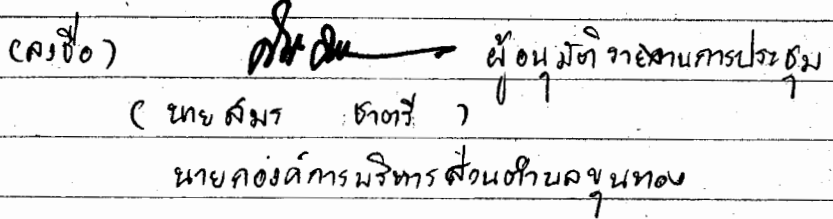 (ลงชื่อ) ผู้อนุมัติรายงานการประชุม
( นายสมร ชาตรี )
นายกองค์การบริหารส่วนตำบลขุนทอง